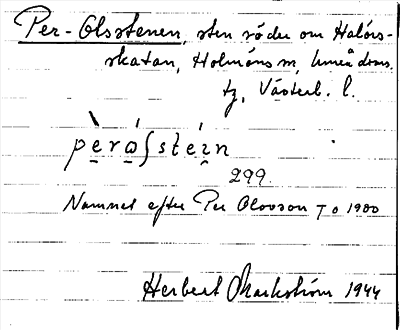 Per-Olsstenen, sten söder om Halörs-
skatan, Holmöns sn, Umeå doms.
tg, Västerb. l.
pèra̱ʃstéi̱n
299.
Namnet efter Per Olovson † o 1900
Herbert Markström 1944